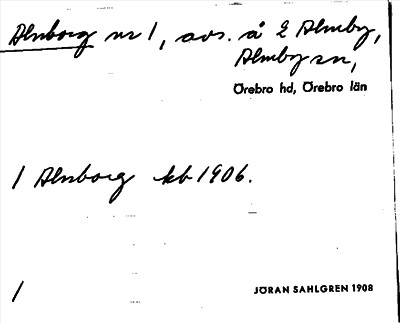 Almborg nr 1, avs. å 2 Almby,
Almby sn,
Örebro hd, Örebro län
1 Almborg kb 1906.
1
JÖRAN SAHLGREN 1908